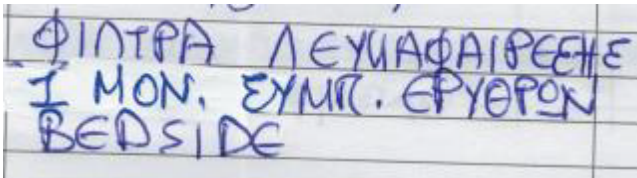 ΦΙΛΤΡΑ ΛΕΥΚΑΦΑΙΡΕΣΗΣ
1 ΜΟΝ. ΣΥΜΠ. ΕΡΥΘΡΩΝ
BEDSIDE